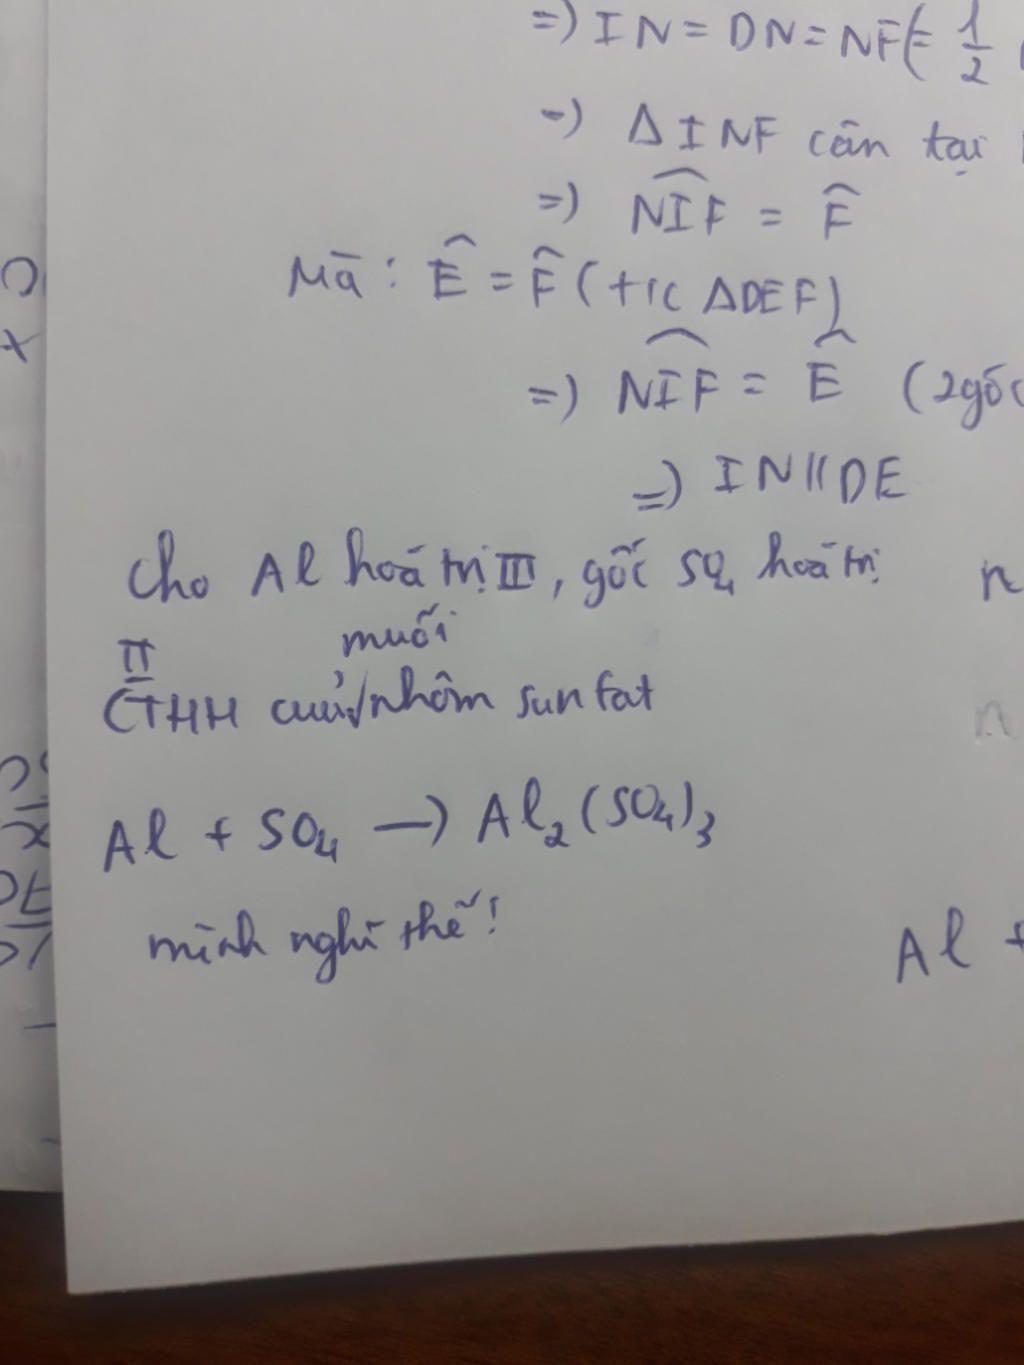 =) IN = DN = NF(= 1/2
-) Δ INF cân tại
=) NIF = F
Mà : Ê = F (+/c ΔDEF)
=) NIF = Ê (2góc
=) IN // DE
Cho Al hoá trị III, gốc SO₄ hoá trị n
II muối
CTHH của/nhôm sunfat n
Al + SO₄ —) Al₂(SO₄)₃
mình nghĩ thế! Al +